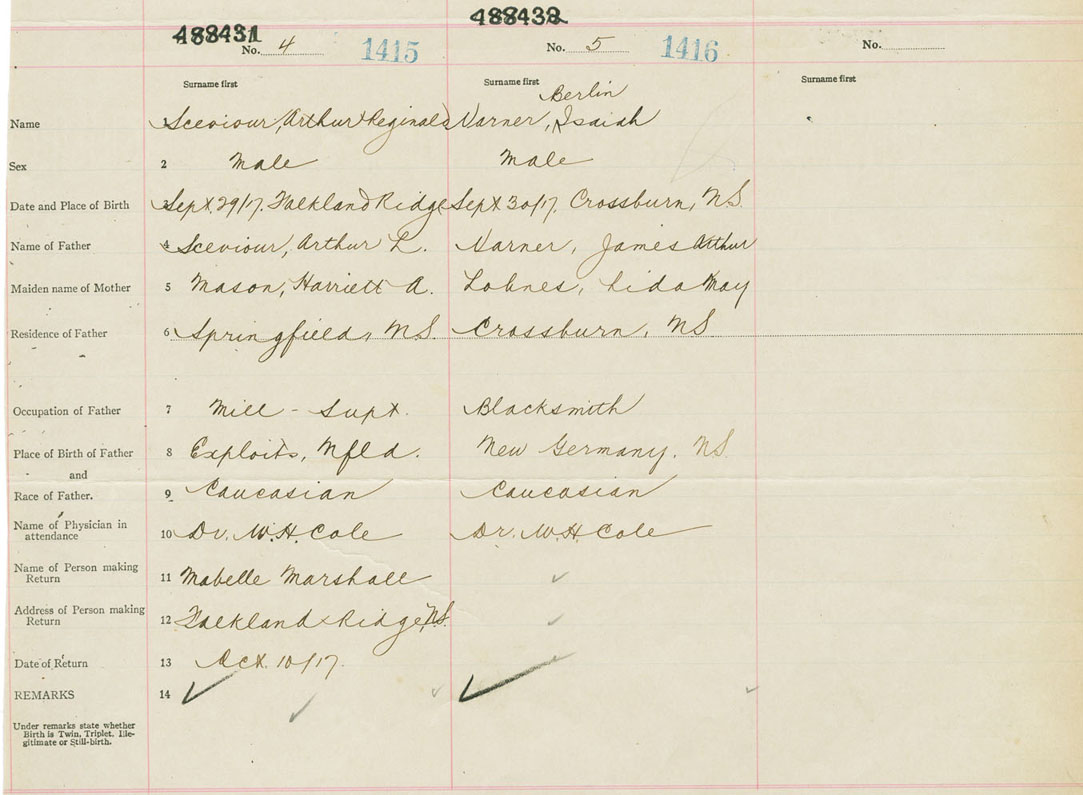 488431
488432
No. 4
1415
No. 5
1416
No.
Surname first
Surname first
Surname first
Berlin
Name
Sceviour, Arthur Reginald
Varner, Isaiah
Sex
2
Male
Male
Date and Place of Birth
3
Sept. 29/17. Falkland Ridge
Sept 30/17. Crossburn, NS.
Name of Father
4
Sceviour, Arthur L.
Varner, James Arthur
Maiden name of Mother
5
Mason, Harriett A.
Lohnes, Lida May
Residence of Father
6
Springfield, N.S.
Crossburn, NS
Occupation of Father
7
Mill - Supt.
Blacksmith
Place of Birth of Father
8
Exploits, Nfld.
New Germany. NS.
and
Race of Father.
9
Caucasian
Caucasian
Name of Physician in
attendance
10
Dr. W.H. Cole
Dr. W.H. Cole
Name of Person making
Return
11
Mabelle Marshall
Address of Person making
Return
12
Falkland Ridge, NS.
Date of Return
13
Oct. 10/17.
REMARKS
14
Under remarks state whether
Birth is Twin, Triplet, Ille-
gitimate or Still-birth.